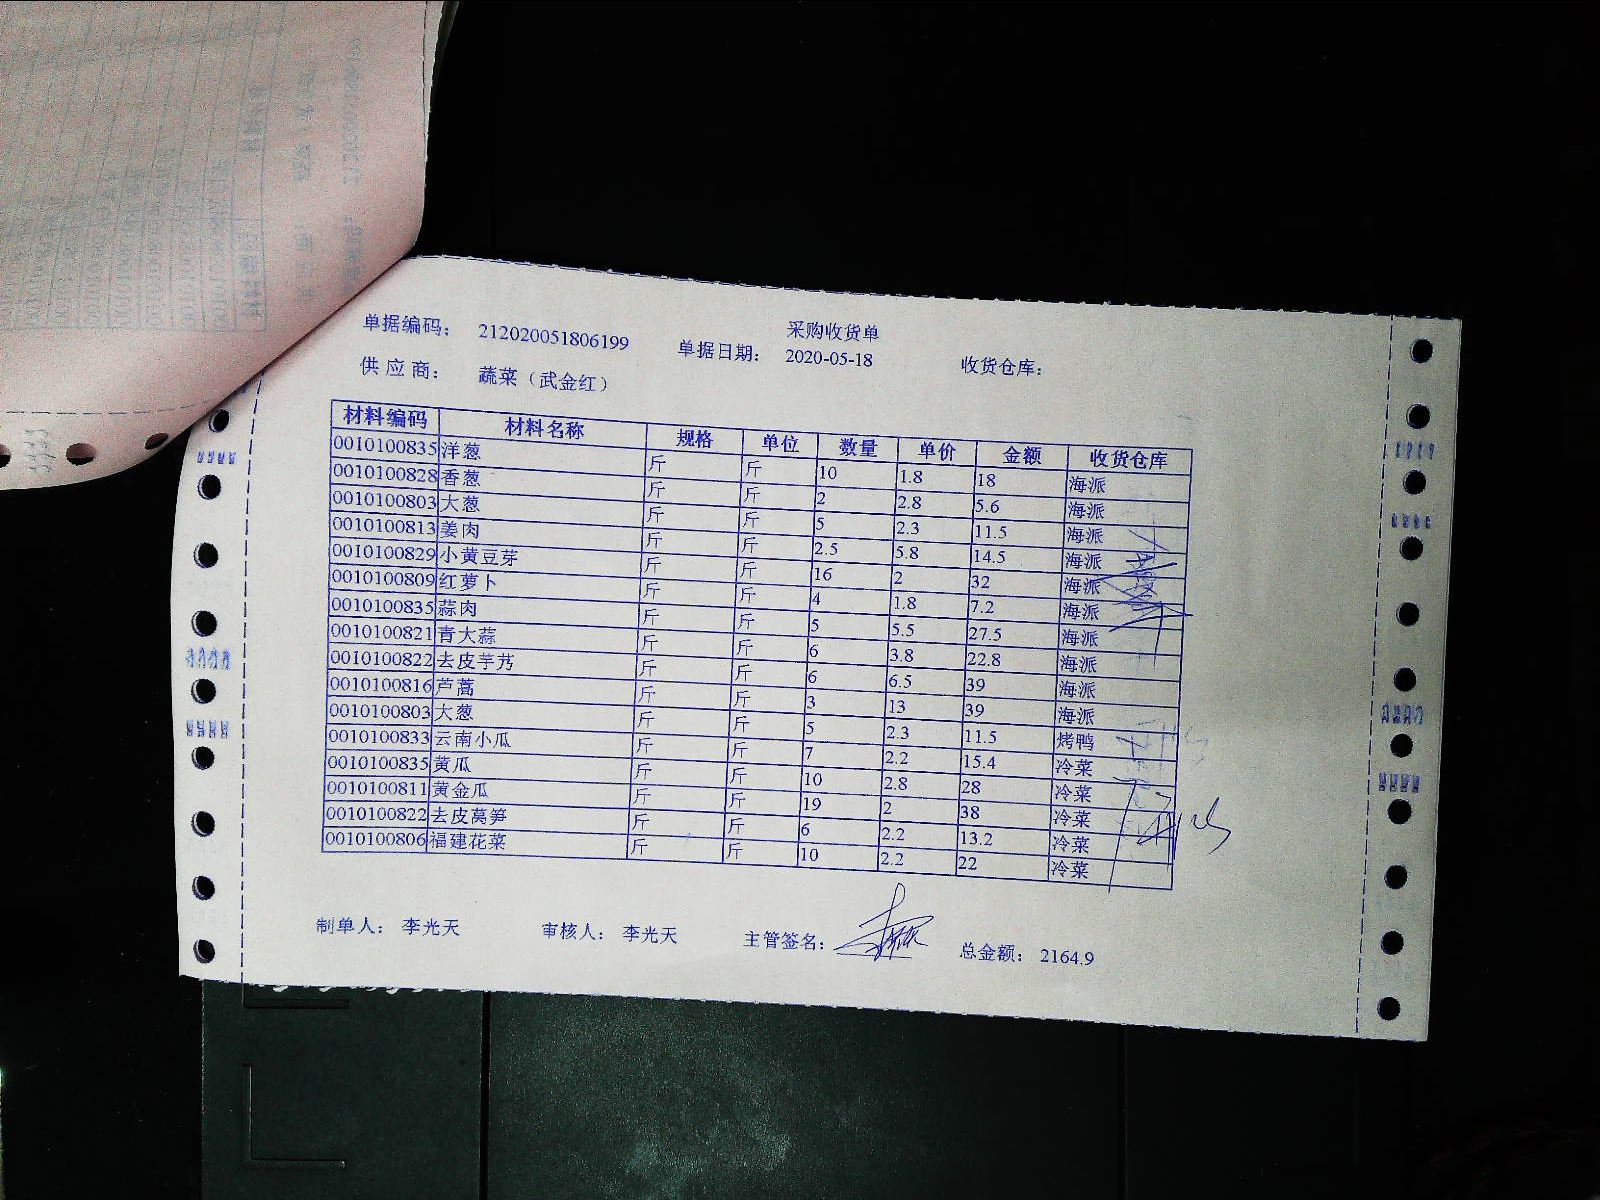 采购收货单
单据编码： 212020051806199 单据日期： 2020-05-18 收货仓库：
供应商： 蔬菜（武金红）
材料编码 材料名称 规格 单位 数量 单价 金额 收货仓库
0010100835 洋葱 斤 斤 10 1.8 18 海派
0010100828 香葱 斤 斤 2 2.8 5.6 海派
0010100803 大葱 斤 斤 5 2.3 11.5 海派
0010100813 姜肉 斤 斤 2.5 5.8 14.5 海派
0010100829 小黄豆芽 斤 斤 16 2 32 海派
0010100809 红萝卜 斤 斤 4 1.8 7.2 海派
0010100835 蒜肉 斤 斤 5 5.5 27.5 海派
0010100821 青大蒜 斤 斤 6 3.8 22.8 海派
0010100822 去皮芋艿 斤 斤 6 6.5 39 海派
0010100816 芦蒿 斤 斤 3 13 39 海派
0010100803 大葱 斤 斤 5 2.3 11.5 烤鸭
0010100833 云南小瓜 斤 斤 7 2.2 15.4 冷菜
0010100835 黄瓜 斤 斤 10 2.8 28 冷菜
0010100811 黄金瓜 斤 斤 19 2 38 冷菜
0010100822 去皮莴笋 斤 斤 6 2.2 13.2 冷菜
0010100806 福建花菜 斤 斤 10 2.2 22 冷菜
制单人： 李光天 审核人： 李光天 主管签名： 总金额： 2164.9